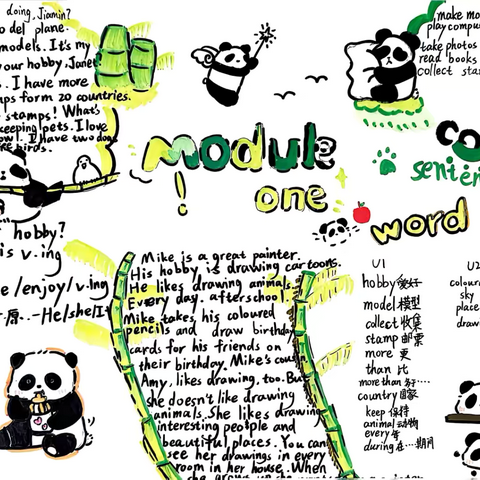 doing, Jiamin?
o del plane.
models. It's my
your hobby, Janet
. I have more
ps form 20 countries.
stamps! What's
keeping pets. I love
I have two dogs
birds.
make mo
play compu
take photos
read books
collect sta
module
one
senten
word
hobby?
is v.ing
e/enjoy/v.ing
原. -He/she/It
Mike is a great painter.
His hobby is drawing cartoons.
He likes drawing animals.
Every day. afterschool
Mike takes his coloured
pencils and draw birthday
cards for his friends on
their birthday. Mike's cousin
Amy, likes drawing, too. But
she doesn't like drawing
animals. She likes drawing
interesting people and
beautiful places. You can
see her drawings in every
room in her house. When
U1
hobby 爱好
model 模型
collect 收集
stamp 邮票
more 更
than 比
more than 多于…
country 国家
keep 保持
animal 动物
every 每
during 在…期间
U2
colour
sky
place
draw